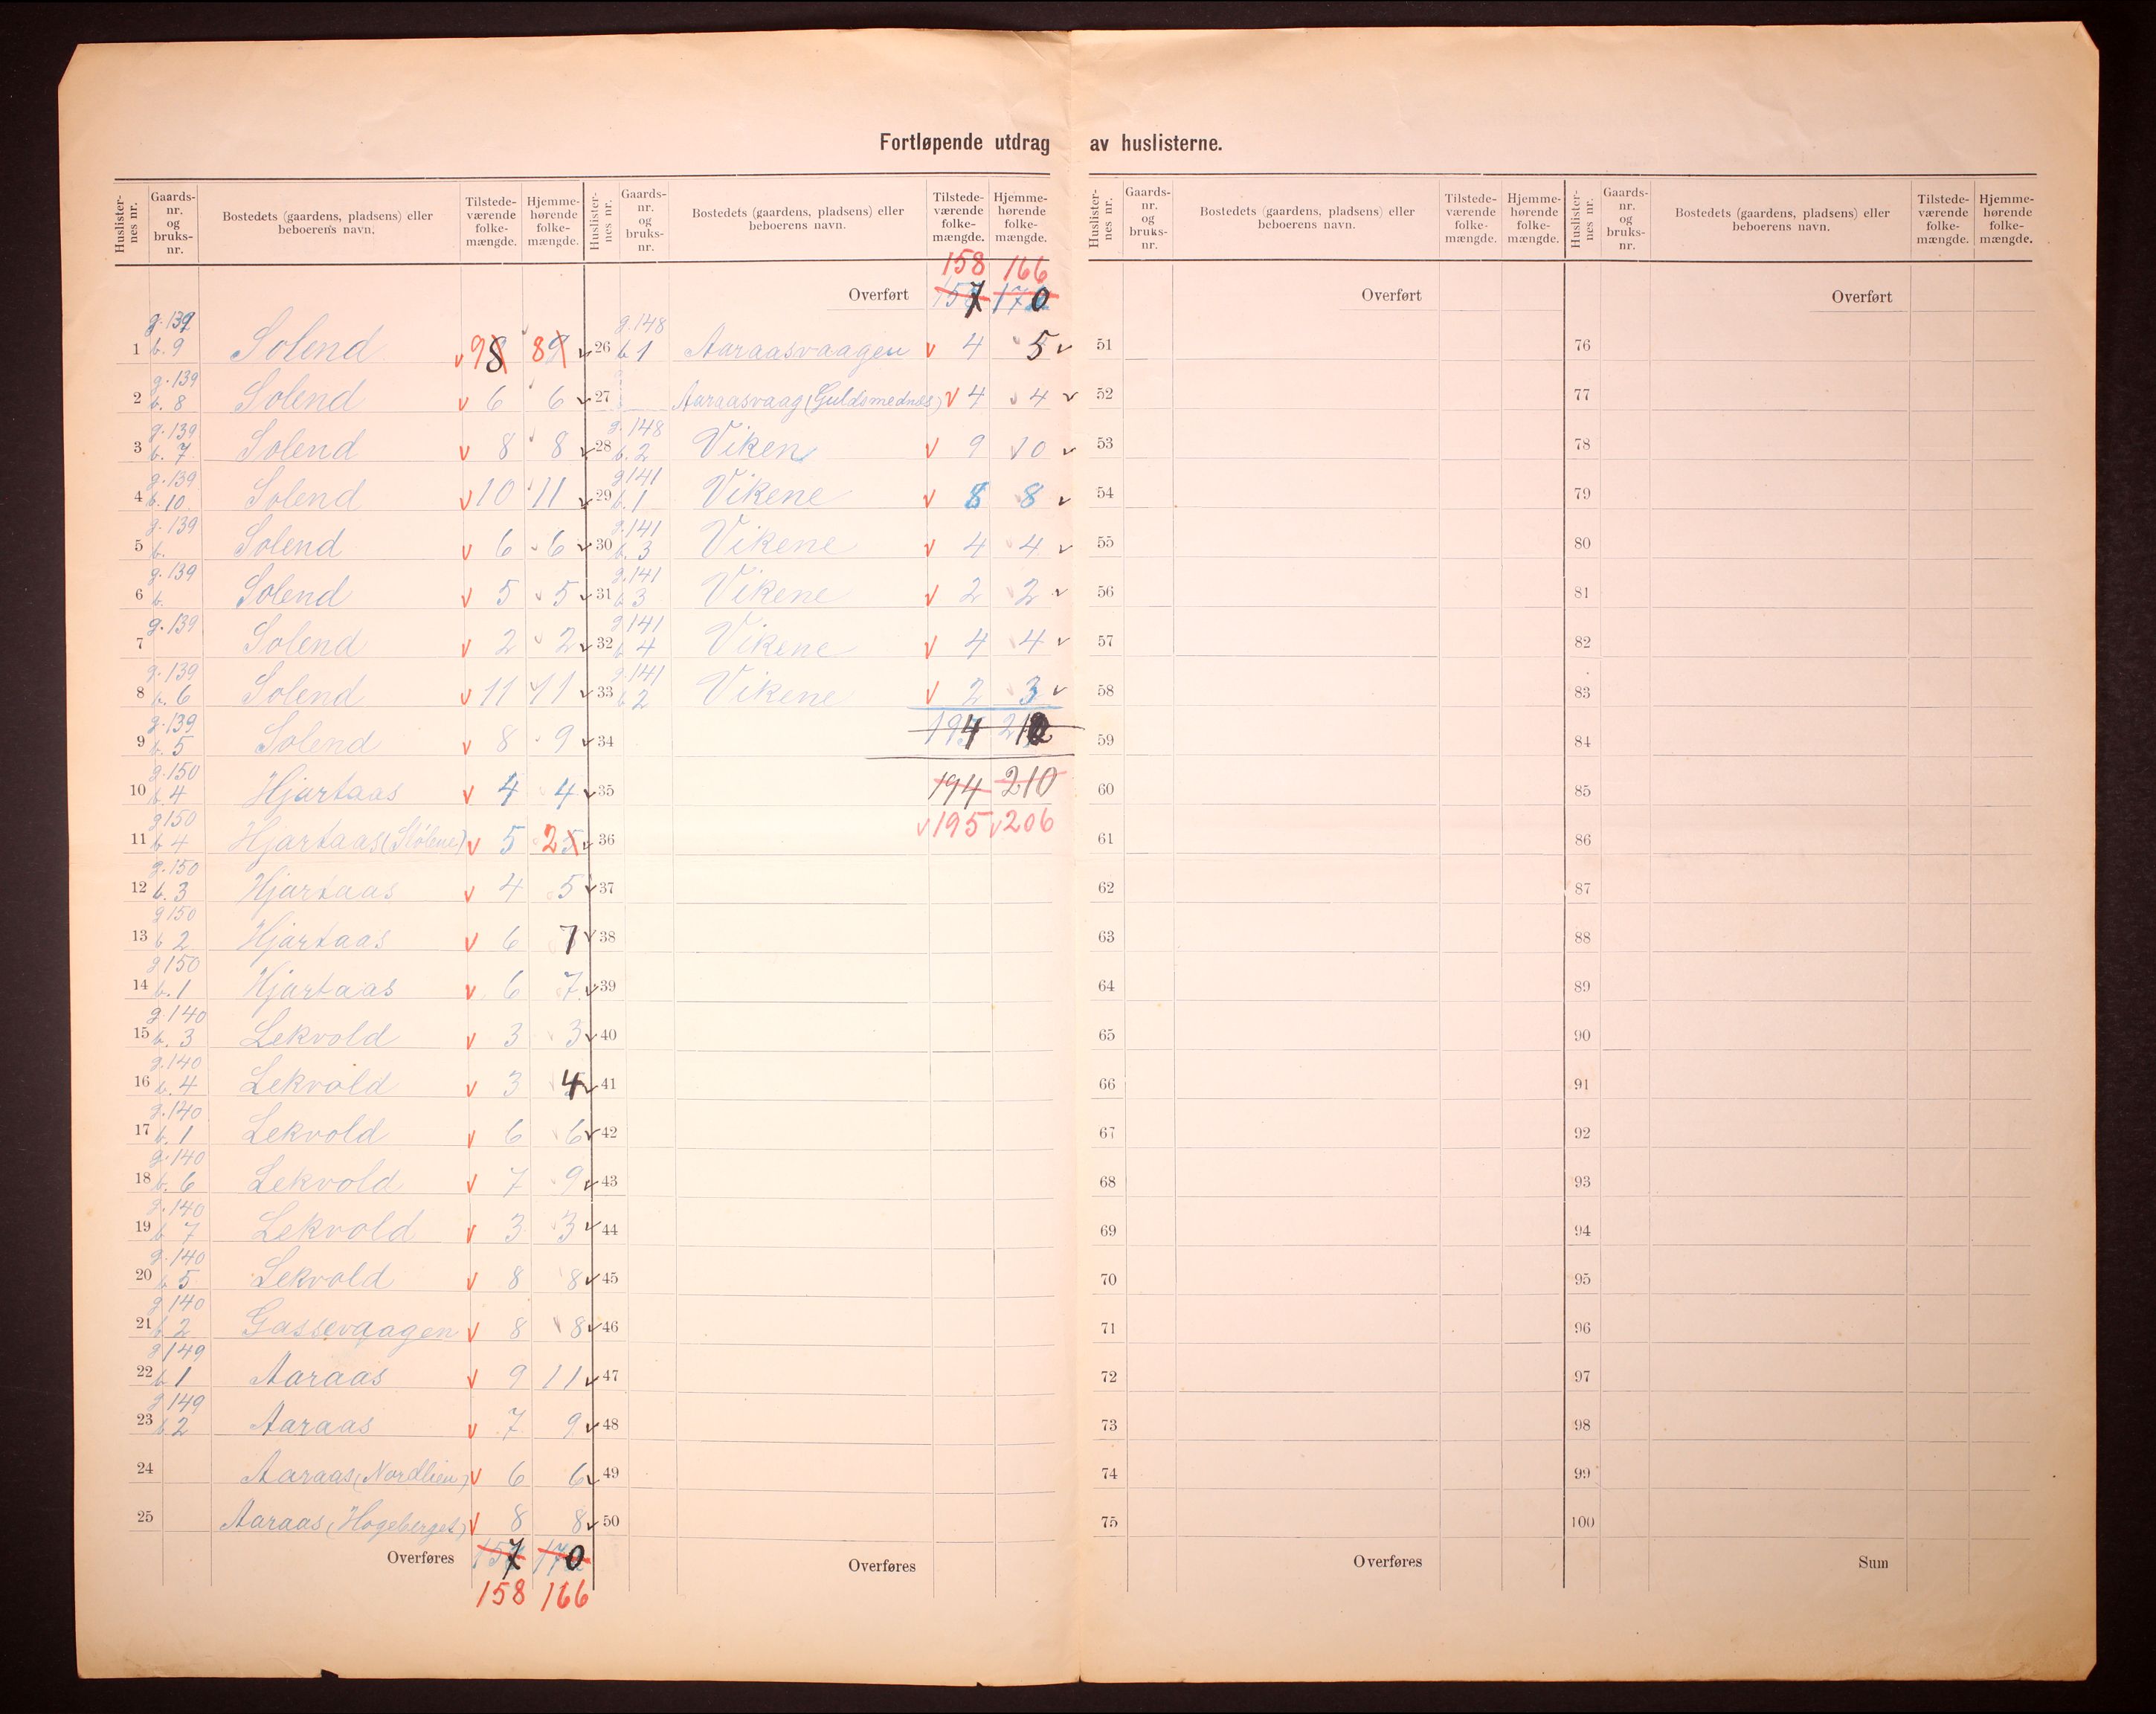 Fortløpende utdrag av huslisterne.
Huslister-nes nr. Gaards-nr. og bruks-nr. Bostedets (gaardens, pladsens) eller beboerens navn. Tilstede-værende folke-mængde. Hjemme-hørende folke-mængde.
g. 139
1 b. 9 Solend v 9 8 8 9 v
g. 139
2 b. 8 Solend v 6 6 v
g. 139
3 b. 7 Solend v 8 8 v
g. 139
4 b. 10 Solend v 10 11 v
g. 139
5 b. Solend v 6 6 v
g. 139
6 b. Solend v 5 5 v
g. 139
7 Solend v 2 2 v
g. 139
8 b. 6 Solend v 11 11 v
g. 139
9 b. 5 Solend v 8 9 v
g. 150
10 b. 4 Hjartaas v 4 4 v
g 150
11 b 4 Hjartaas (Stölene) v 5 2 5 v
g. 150
12 b. 3 Hjartaas v 4 5 v
g 150
13 b 2 Hjartaas v 6 7 v
g 150
14 b. 1 Hjartaas v 6 7 v
g. 140
15 b. 3 Lekvold v 3 3 v
g. 140
16 b. 4 Lekvold v 3 4 v
g. 140
17 b. 1 Lekvold v 6 6 v
g. 140
18 b. 6 Lekvold v 7 9 v
g. 140
19 b 7 Lekvold v 3 3 v
g. 140
20 b 5 Lekvold v 8 8 v
g 140
21 b 2 Gassevaagen v 8 8 v
g 149
22 b 1 Aaraas v 9 11 v
g 149
23 b 2 Aaraas v 7 9 v
24 Aaraas (Nordlien) v 6 6 v
25 Aaraas (Hogeberget) v 8 8 v
Overføres 157 170
158 166
Huslister-nes nr. Gaards-nr. og bruks-nr. Bostedets (gaardens, pladsens) eller beboerens navn. Tilstede-værende folke-mængde. Hjemme-hørende folke-mængde.
158 166
Overført 157 170
g. 148
26 b 1 Aaraasvaagen v 4 5 v
27 Aaraasvaag (Guldsmednes) v 4 4 v
g. 148
28 b. 2 Viken v 9 10 v
g 141
29 b. 1 Vikene v 8 8 v
g. 141
30 b. 3 Vikene v 4 4 v
g. 141
31 b 3 Vikene v 2 2 v
g 141
32 b 4 Vikene v 4 4 v
g. 141
33 b 2 Vikene v 2 3 v
34 194 210
35 194 210
36 v 195 v 206
37
38
39
40
41
42
43
44
45
46
47
48
49
50
Overføres
Huslister-nes nr. Gaards-nr. og bruks-nr. Bostedets (gaardens, pladsens) eller beboerens navn. Tilstede-værende folke-mængde. Hjemme-hørende folke-mængde.
Overført
51
52
53
54
55
56
57
58
59
60
61
62
63
64
65
66
67
68
69
70
71
72
73
74
75
Overføres
Huslister-nes nr. Gaards-nr. og bruks-nr. Bostedets (gaardens, pladsens) eller beboerens navn. Tilstede-værende folke-mængde. Hjemme-hørende folke-mængde.
Overført
76
77
78
79
80
81
82
83
84
85
86
87
88
89
90
91
92
93
94
95
96
97
98
99
100
Sum